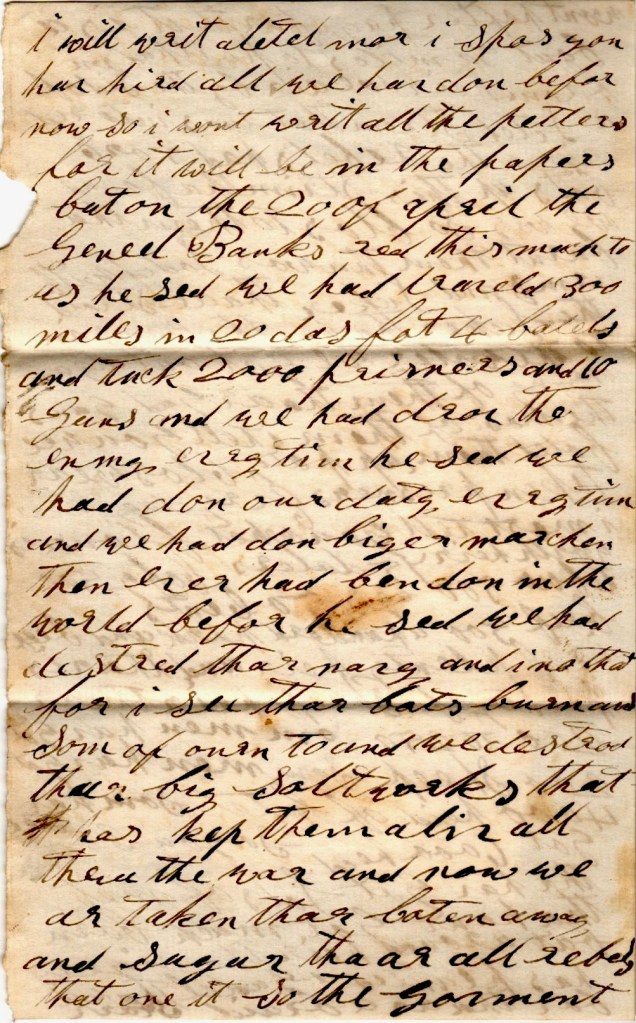 i will writ a letel mor i spos you
har hird all we har don befor
now so i wont writ all the petlers
for it will be in the papers
but on the 20 of april the
Genel Banks red this much to
us he sed we had traveld 300
miles in 20 das fot 4 batels
and tuck 2000 prisners and 10
Guns and we had drov the
enmy evry tim he sed we
had don our duty evry tim
and we had don biger marchen
then ever had ben don in the
world befor he sed we had
destred thar navy and i no that
for i see thar bots burn and
som of ourn to and we destrod
thar big Solt works that
has kep them aliv all
threw the war and now we
ar taken thar coten away
and sugar tha ar all rebels
that one it so the Gorment